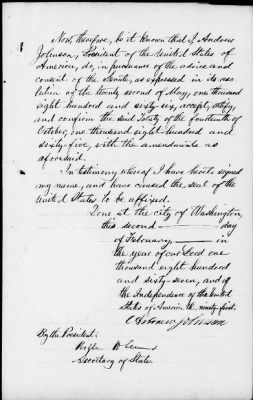 Now, therefore, be it known that I, Andrew
Johnson, President of the United States of
America, do, in pursuance of the advice and
consent of the Senate, as expressed in its reso
lution of the twenty second of May, one thousand
eight hundred and sixty-six, accept, ratify,
and confirm the said Treaty of the fourteenth of
October, one thousand eight hundred and
sixty-five, with the amendments as
aforesaid.
In testimony whereof I have hereto signed
my name, and have caused the seal of the
United States to be affixed.
Done at the city of Washington,
this second day
of February, in
the year of our Lord one
thousand eight hundred
and sixty-seven, and of
the Independence of the United
States of America the ninety-first.
Andrew Johnson
By the President:
Secretary of State